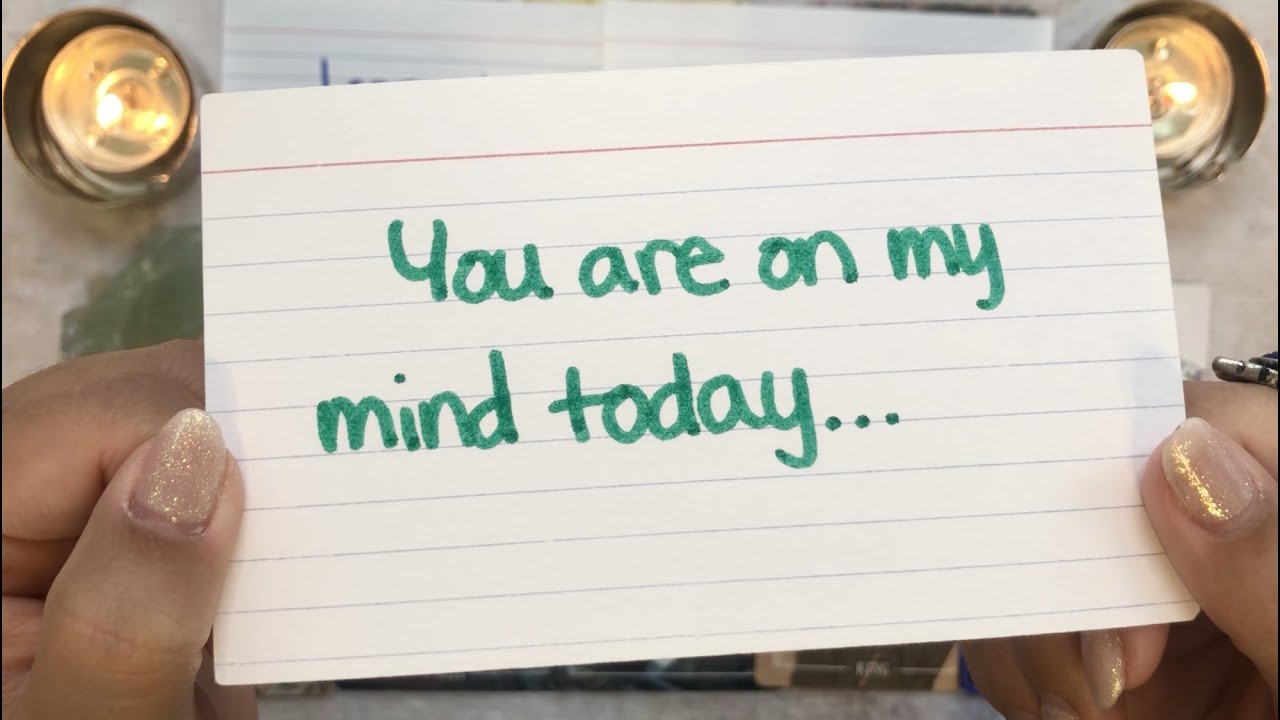 You are on my
mind today...